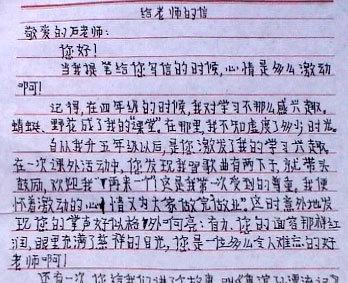 给老师的信
敬爱的石老师:
您好!
当我提笔给您写信的时候,心情是多么激动
啊!
记得,在四年级的时候,我对学习不那么感兴趣。
蜻蜓、野花成了我的"课堂"。在那里,我不知虚度了多少时光。
自从我升五年级以后,是您激发了我的学习兴趣。
在一次课外活动中,您发现我唱歌曲有两下子,就带头
鼓励,欢迎我"再来一个"这是我第一次受到的尊重,我便
怀着激动的心情又为大家做完做业"这时意外地发
现您的掌声好似格外响亮;有力,您的面容那样红
润,眼里充满了慈祥的目光,您是一位多么令人难忘的好
老师啊!
还有一次,您给我们讲了个故事,叫《鲁滨孙漂流记》